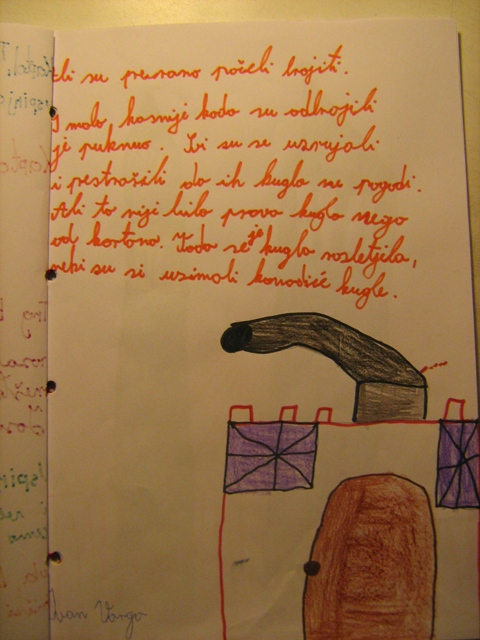 ali su prerano počeli brojiti.
I malo kasnije kada su odbrojili
je puknuo. Svi su se uzrujali
i prestrašili da ih kugla ne pogodi.
Ali to nije bila prava kugla nego
od kartona. Kada se je kugla razletjila,
neki su si uzimali komadić kugle.
Ivan Vargo